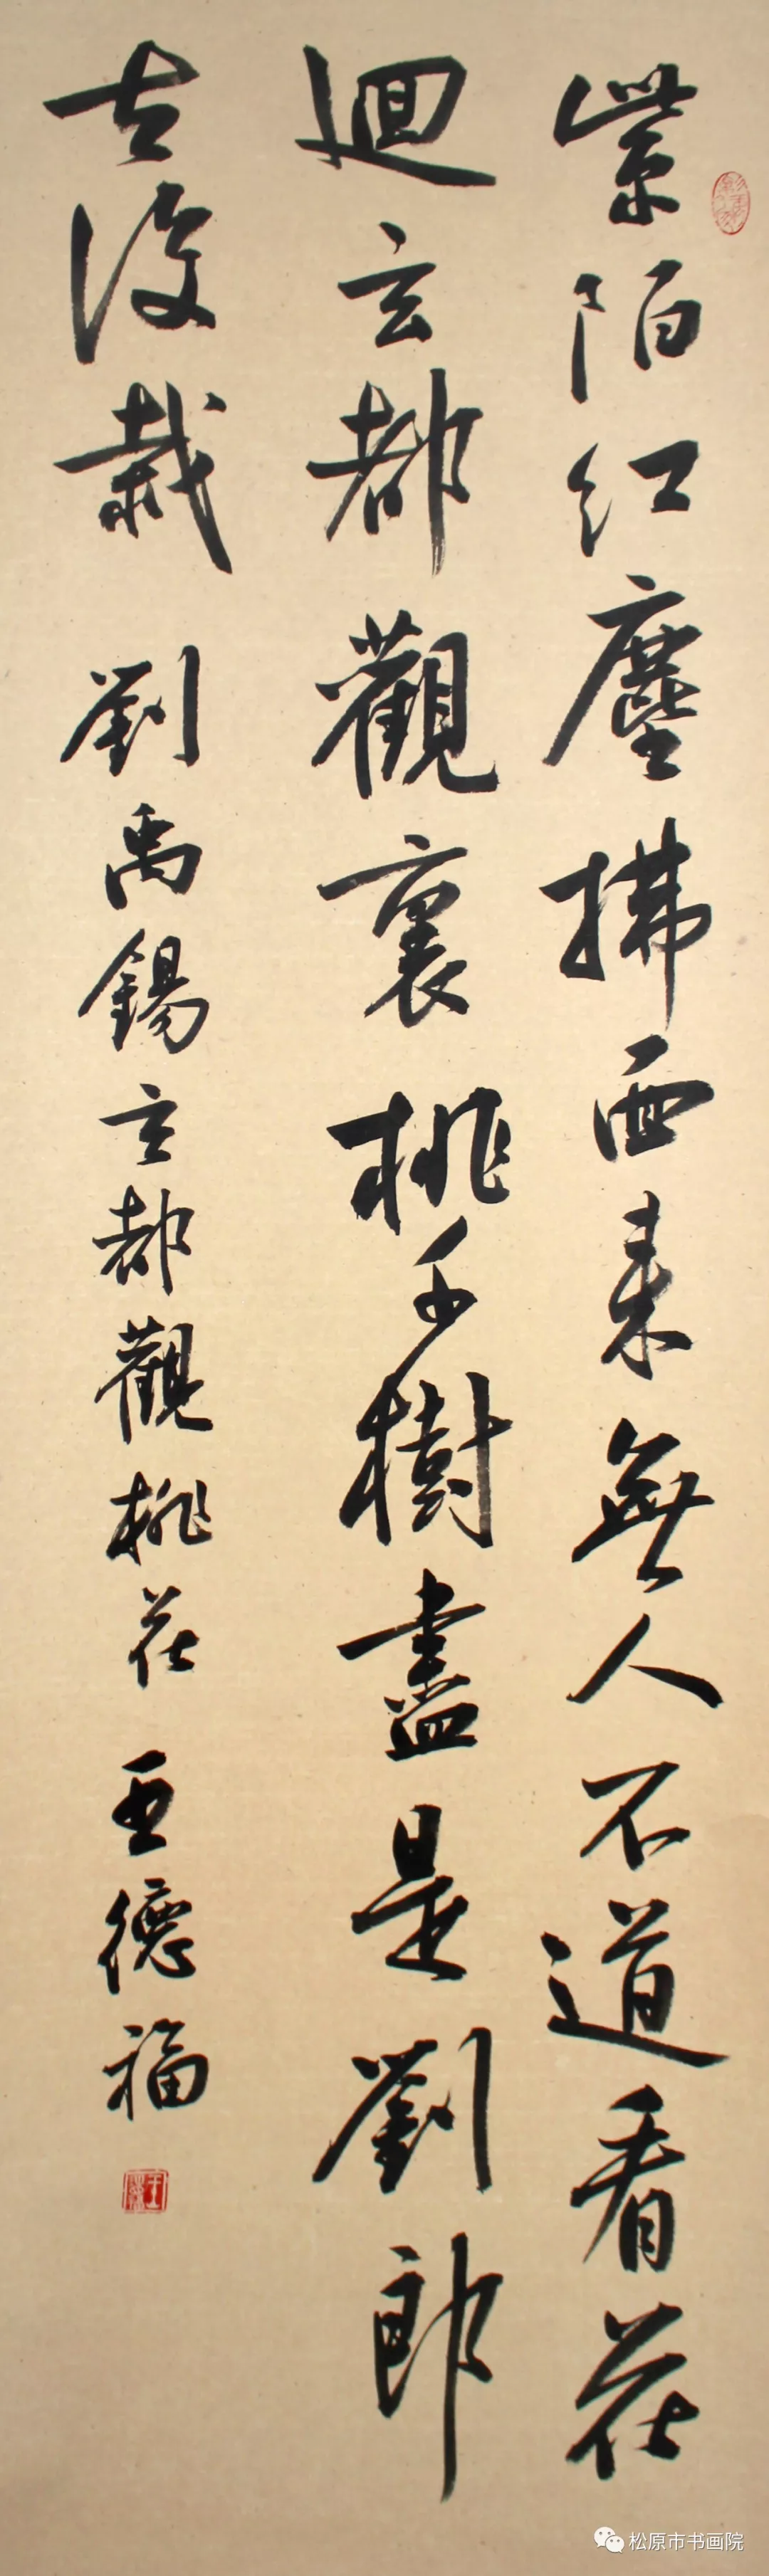 紫陌红塵拂面来無人不道看花
迴玄都觀裏桃千樹盡是劉郎
去後栽 劉禹錫玄都觀桃花 王德福
松原市书画院